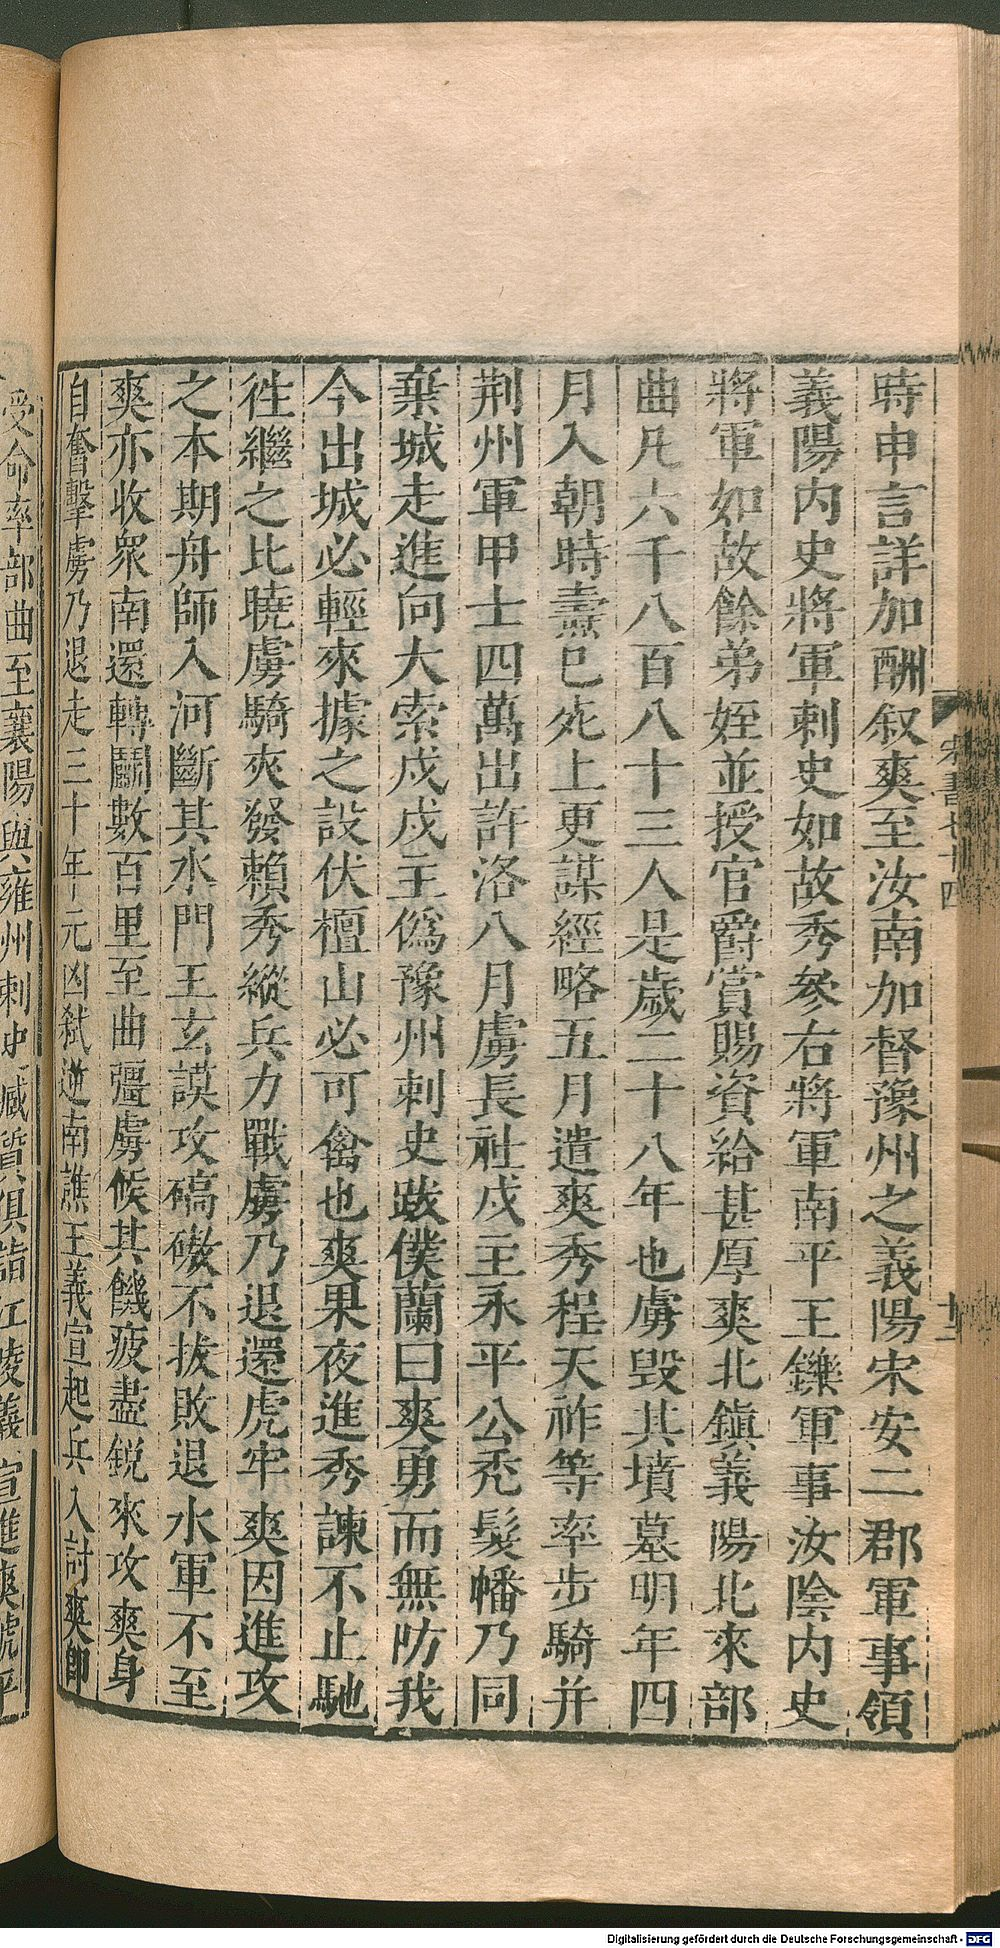 時申言詳加酬叙爽至汝南加督豫州之義陽宋安二郡軍事領
義陽内史將軍刺史如故秀參右將軍南平王鑠軍事汝陰内史
將軍如故餘弟姪並授官爵賞賜資給甚厚爽北鎮義陽北來部
曲凡六千八百八十三人是歲二十八年也虜毀其墳墓明年四
月入朝時燾已死上更謀經略五月遣爽秀程天祚等率步騎并
荆州軍甲士四萬出許洛八月虜長社戍主永平公禿髮幡乃同
棄城走進向大索戍戍主僞豫州刺史跋僕蘭曰爽勇而無防我
今出城必輕來據之設伏檀山必可禽也爽果夜進秀諫不止馳
徃繼之比曉虜騎夾發賴秀縱兵力戰虜乃退還虎牢爽因進攻
之本期舟師入河斷其水門王玄謨攻碻磝不拔敗退水軍不至
爽亦收衆南還轉鬬數百里至曲彊虜候其饑疲盡鋭來攻爽身
自奮擊虜乃退走三十年元凶弑逆南譙王義宣起兵入討爽卽
受命率部曲至襄陽與雍州刺史臧質俱詣江陵義宣進爽號平
宋書七十四
Digitalisierung gefördert durch die Deutsche Forschungsgemeinschaft - DFG